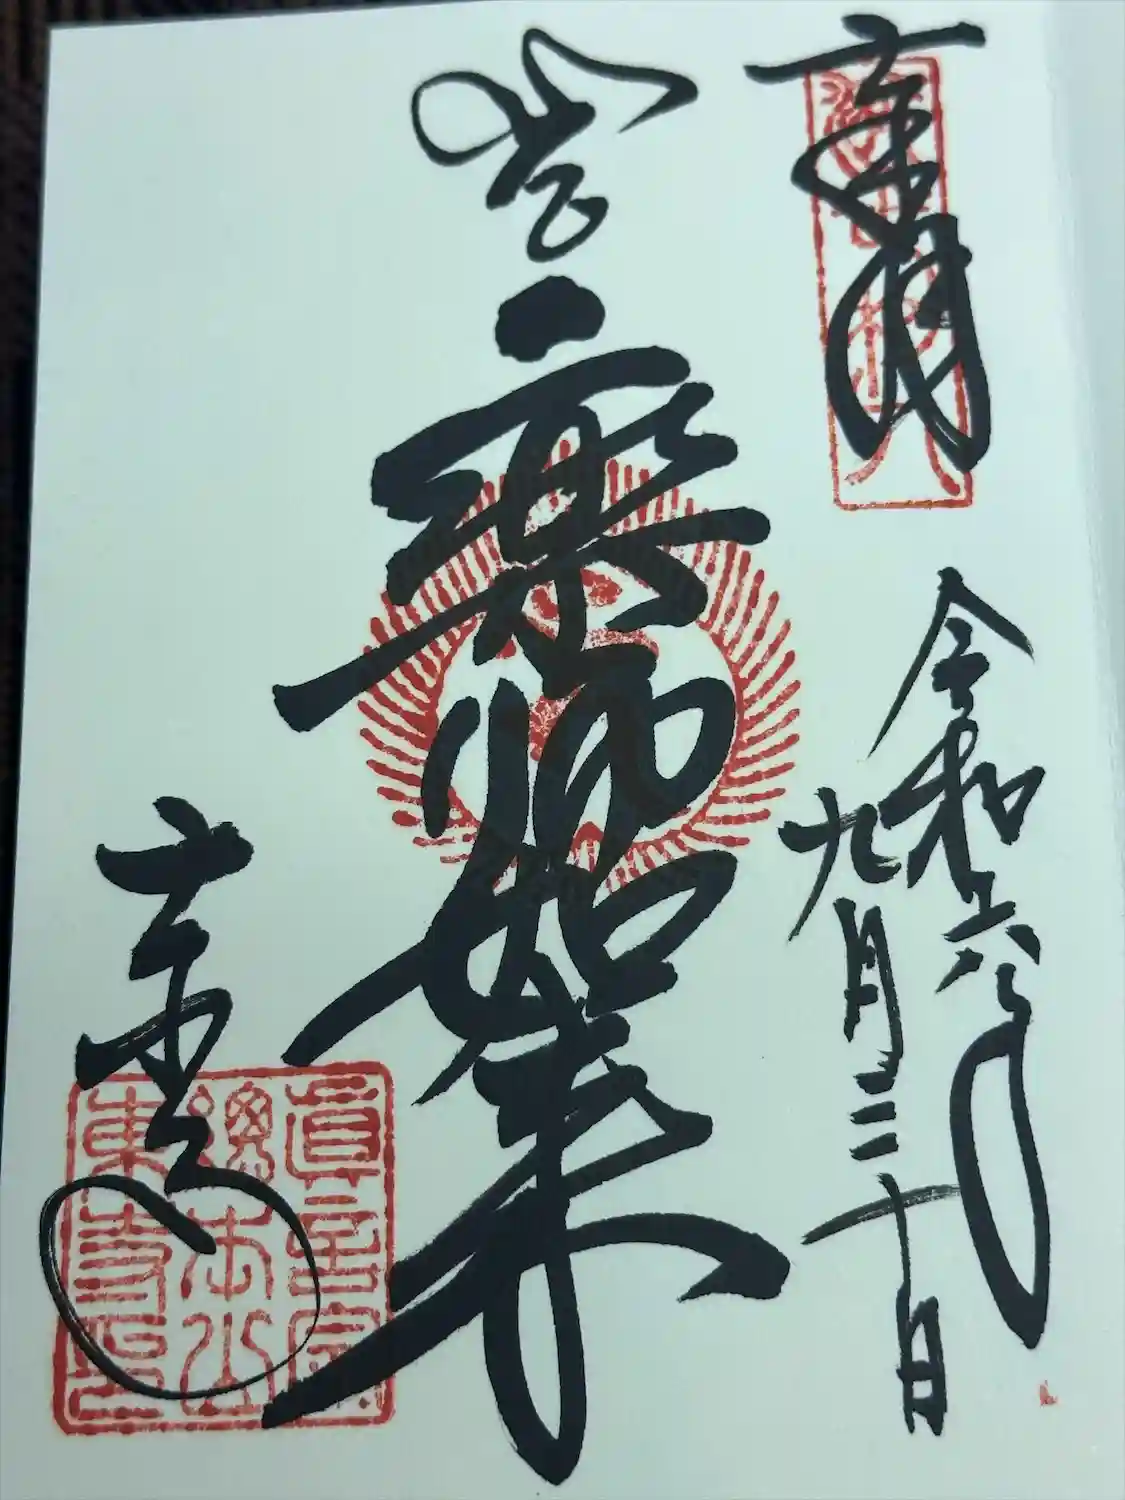 奉拝
令和六年
九月三十日
薬師如来
東寺
真言宗
總本山
東寺印